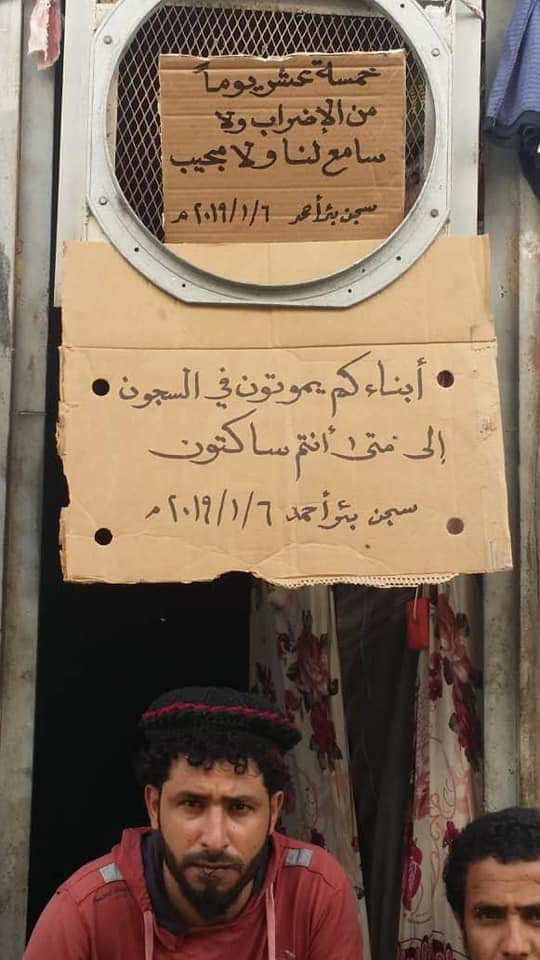 خمسة عشر يوماً
من الإضراب ولا
سامع لنا ولا مجيب
سجن بئر أحمد ٢٠١٩/١/٦ م
أبناءكم يموتون في السجون
إلى متى أنتم ساكتون
سجن بئر أحمد ٢٠١٩/١/٦ م